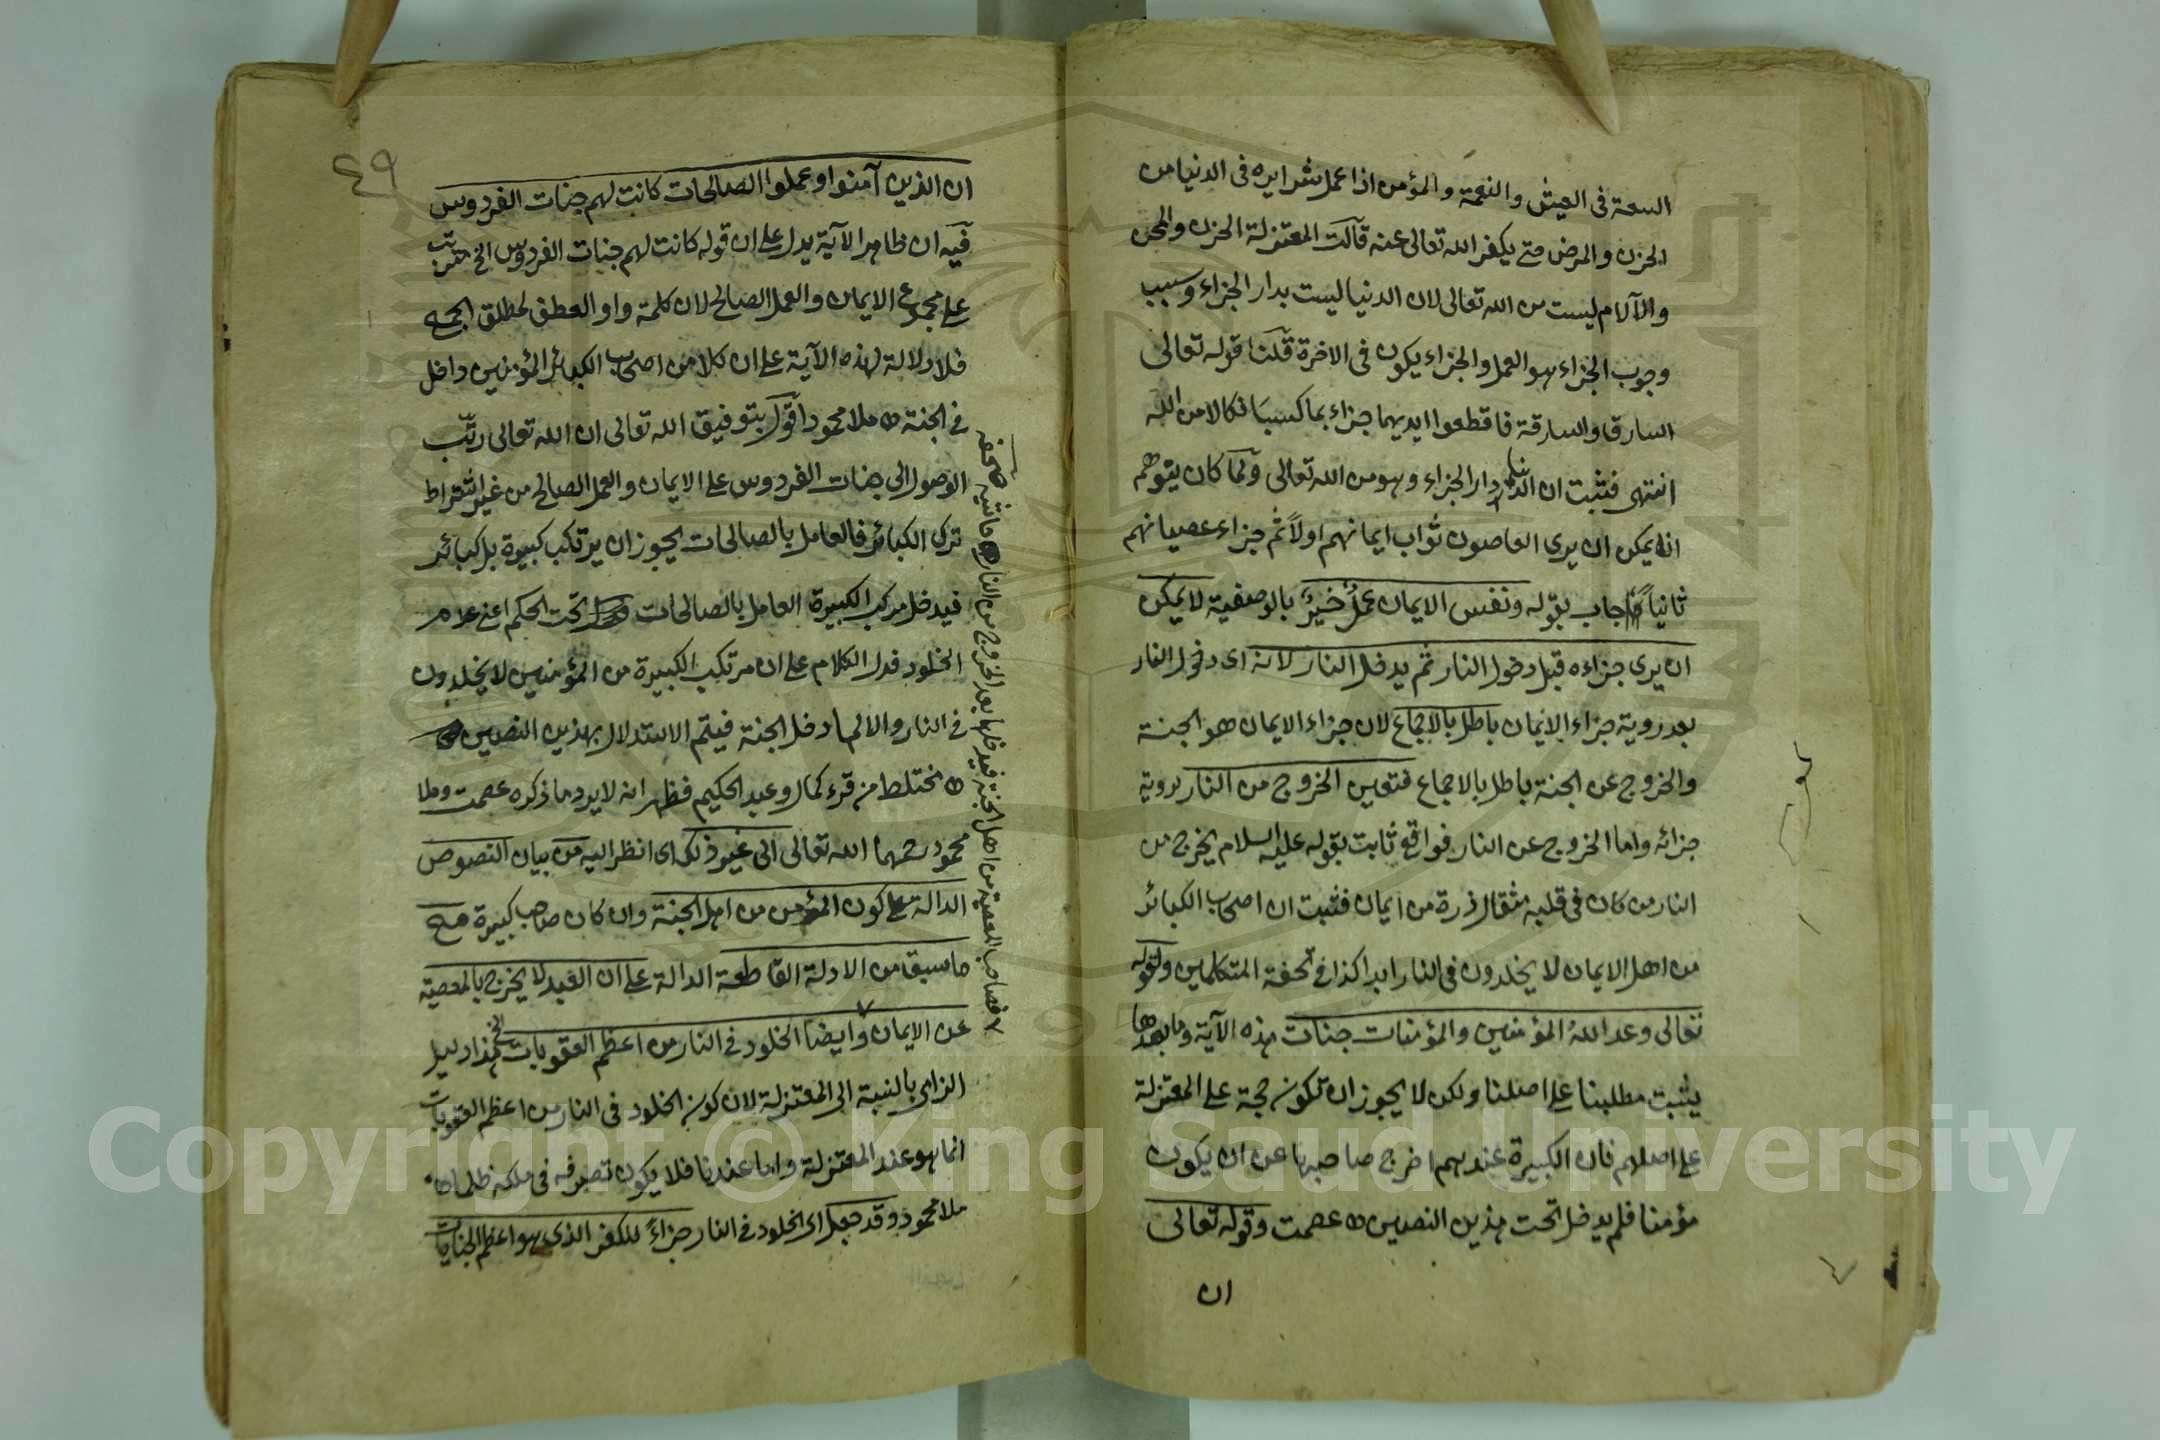 السعة فى العيش والنعمة والمؤمن اذا عمل شرا يره فى الدنيا من
الحزن والمرض حتى يكفر الله تعالى عنه قالت المعتزلة الحزن والمحن
والآلام ليست من الله تعالى لان الدنيا ليست بدار الجزاء وسبب
وجوب الجزاء هو العمل والجزاء يكون فى الاخرة قلنا قوله تعالى
السارق والسارقة فاقطعوا ايديهما جزاء بما كسبا نكالا من الله
انتهى فثبت ان الدنيا دار الجزاء وهو من الله تعالى ولما كان يتوهم
انه يمكن ان يرى العاصون ثواب ايمانهم اولاً ثم جزاء عصيانهم
ثانياً اجاب بقوله ونفس الايمان عملُ خيرٍ بالوصفية لا يمكن
ان يرى جزاءه قبل دخول النار ثم يدخل النار لانه اى دخول النار
بعد روية جزاء الايمان باطل بالاجماع لان جزاء الايمان هو الجنة
والخروج عن الجنة باطل بالاجماع فتعين الخروج من النار لروية
جزائه واما الخروج عن النار فواقع ثابت بقوله عليه السلام يخرج من
النار من كان فى قلبه مثقال ذرة من ايمان فثبت ان اصحاب الكبائر
من اهل الايمان لا يخلدون فى النار ابدا كذا فى تحفة المتكلمين ولقوله
تعالى وعد اللهُ المؤمنين والمؤمنات جنات هذه الآية وما بعدها
يثبت مطلبنا على اصلنا ولكن لا يجوز ان تكون حجة على المعتزلة
على اصلهم فان الكبيرة عندهم اخرج صاحبها عن ان يكون
مؤمنا فلم يدخل تحت هذين النصين عصمت وقوله تعالى
ان
٤٩
ان الذين آمنوا وعملوا الصالحات كانت لهم جنات الفردوس
فيه ان ظاهر الآية يدل على ان قوله كانت لهم جنات الفردوس الخ مترتب
على مجموع الايمان والعمل الصالح لان كلمة واو العطف لمطلق الجمع
فلا دلالة لهذه الآية على ان كلا من اصحاب الكبائر المؤمنين داخل
فى الجنة ملا محمود اقول بتوفيق الله تعالى ان الله تعالى رتّب
الوصول الى جنات الفردوس على الايمان والعمل الصالح من غير اشتراط
ترك الكبائر فالعامل بالصالحات يجوز ان يرتكب كبيرة بل كبائر
فيدخل مركب الكبيرة العامل بالصالحات تحت الحكم اعنى عدم
الخلود فدل الكلام على ان مرتكب الكبيرة من المؤمنين لا يخلدون
فى النار والا لما دخل الجنة فيتم الاستدلال بهذين النصين
مختلط من قره كمال وعبد الحكيم فظهر انه لا يرد ما ذكره عصمت وملا
محمود رحمهما الله تعالى الى غير ذلك اى انظر اليه من بيان النصوص
الدالة على كون المؤمن من اهل الجنة وان كان صاحب كبيرة مع
ما سبق من الادلة القاطعة الدالة على ان العبد لا يخرج بالمعصية
عن الايمان وايضا الخلود فى النار من اعظم العقوبات الخ هذا دليل
الزامى بالنسبة الى المعتزلة لان كون الخلود فى النار من اعظم العقوبات
انما هو عند المعتزلة واما عندنا فلا يكون تصرفه فى ملكه ظلما
ملا محمود وقد جعل اى الخلود فى النار جزاءً للكفر الذى هو اعظم الجنايات
فصاحب المعصية من اهل الجنة فيدخلها بعد الخروج من النار حاشيه
Copyright © King Saud University